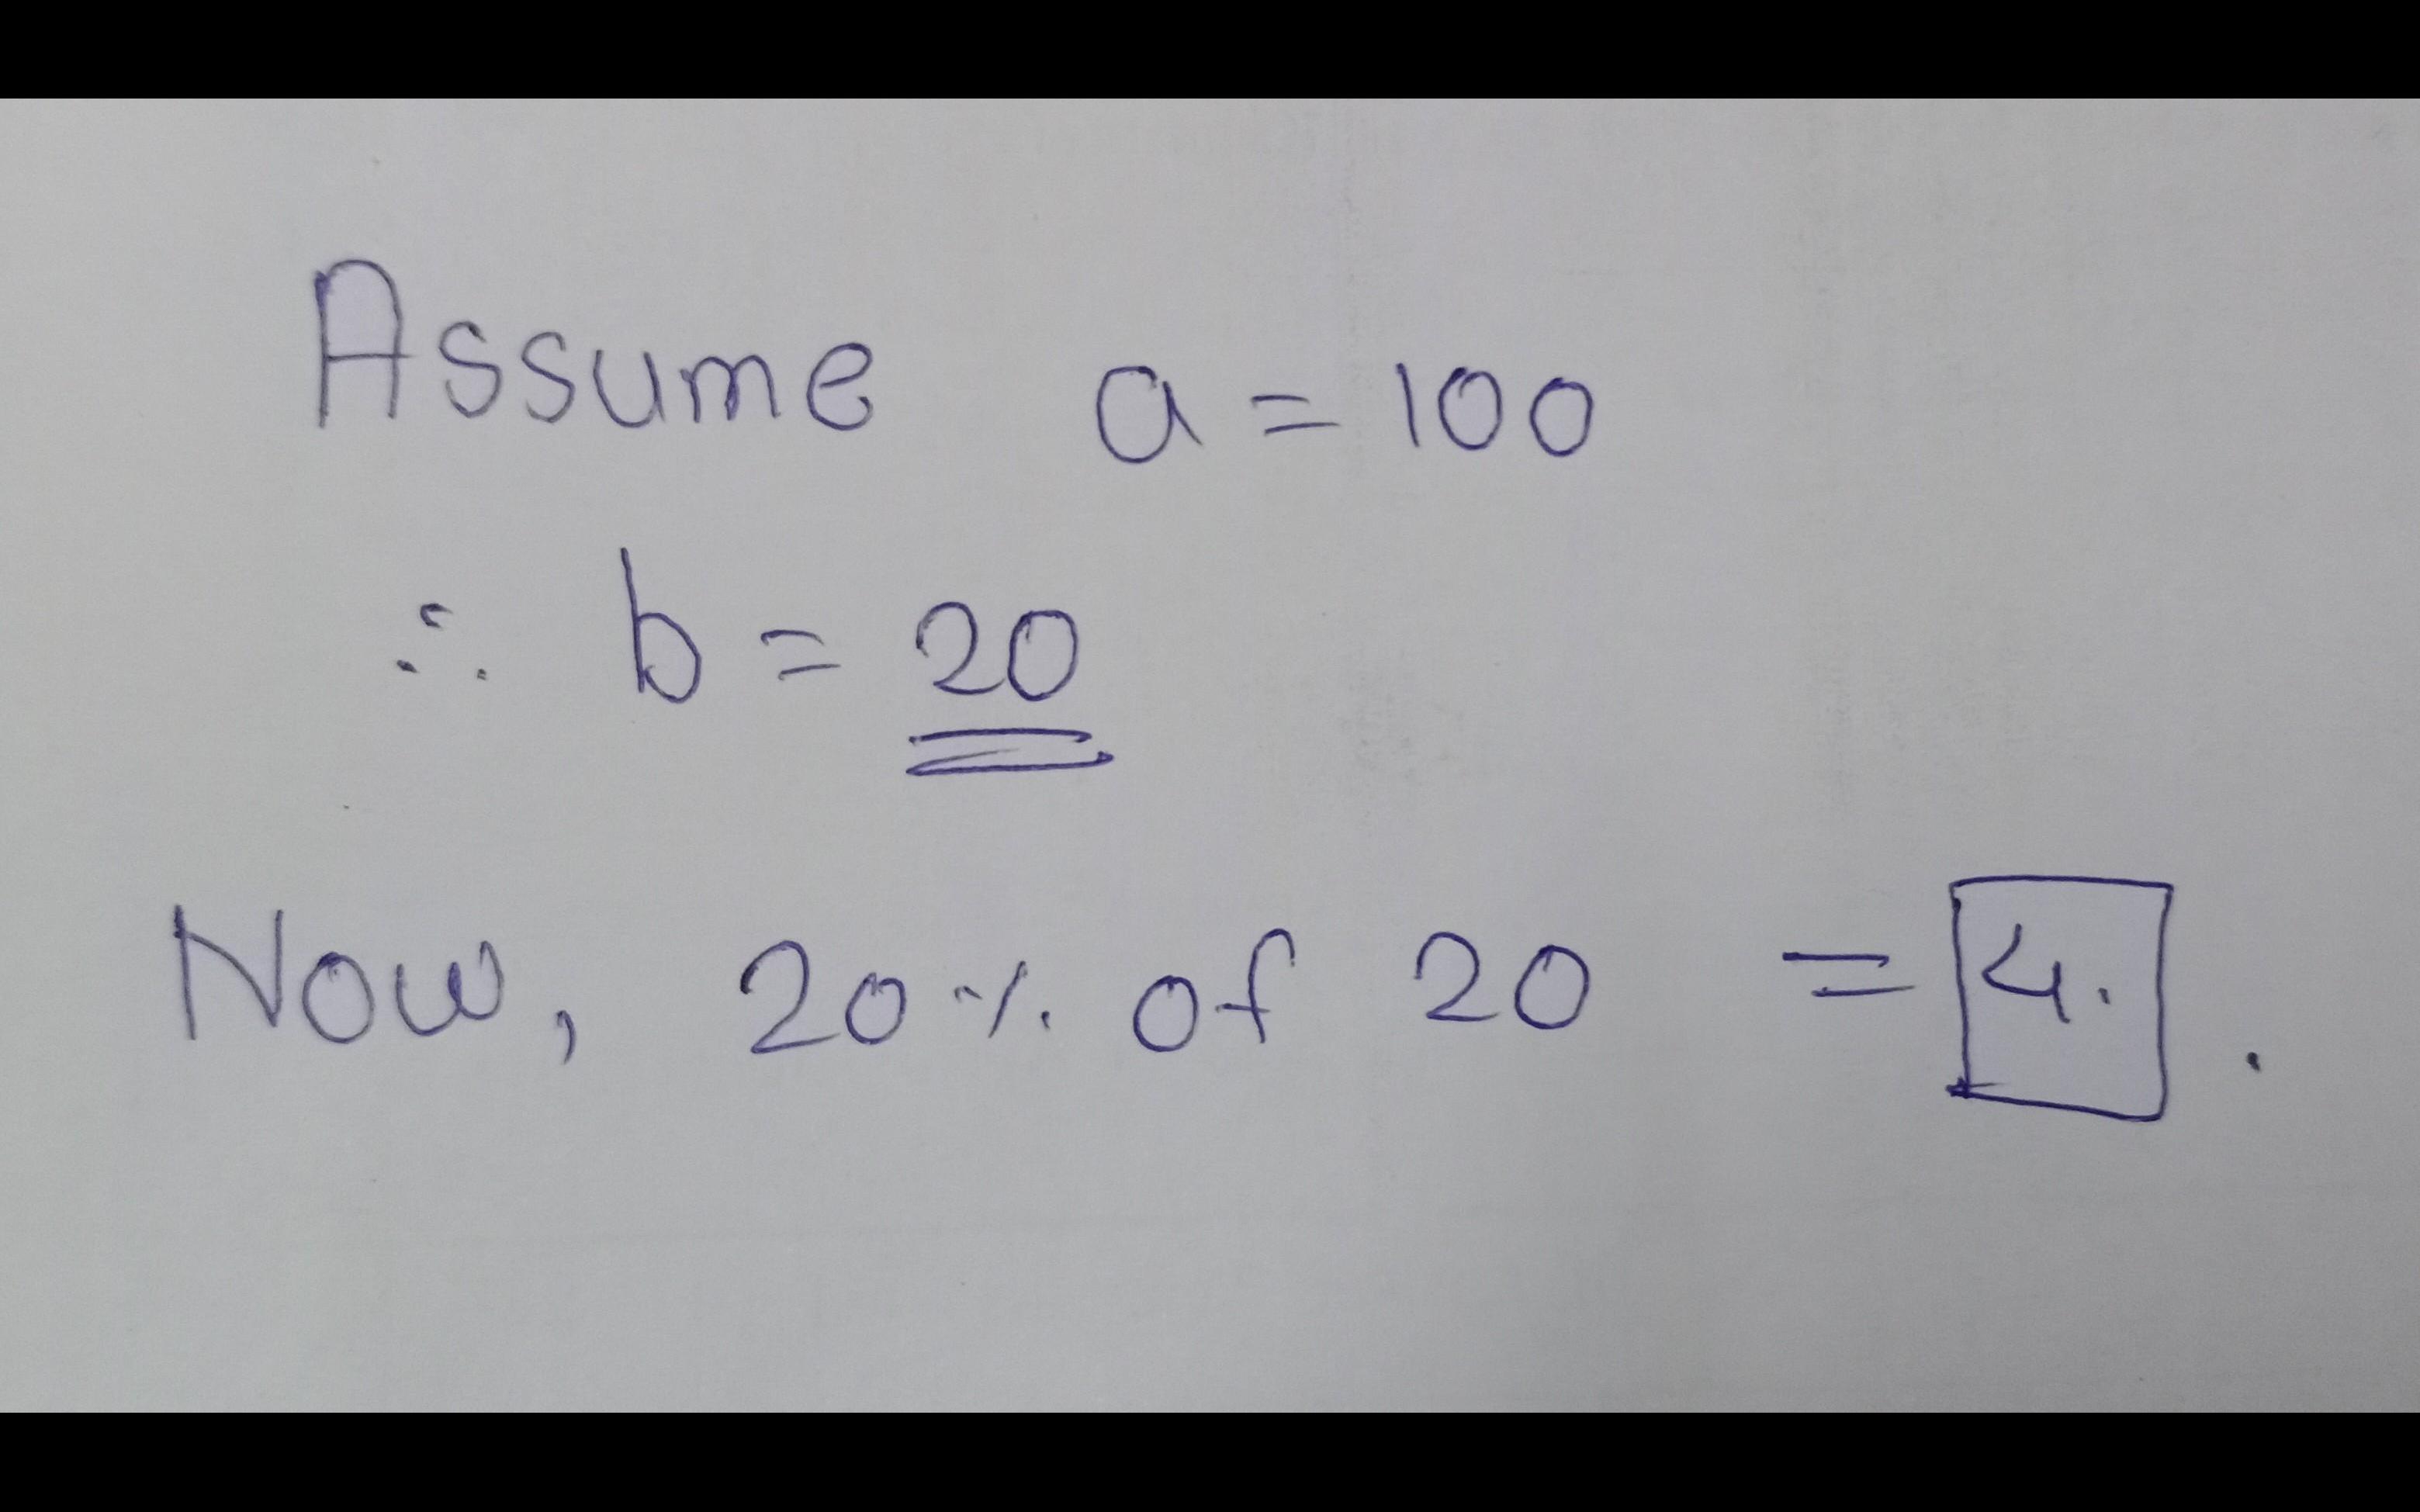 Assume a = 100
∴ b = 20
Now, 20% of 20 = 4. .